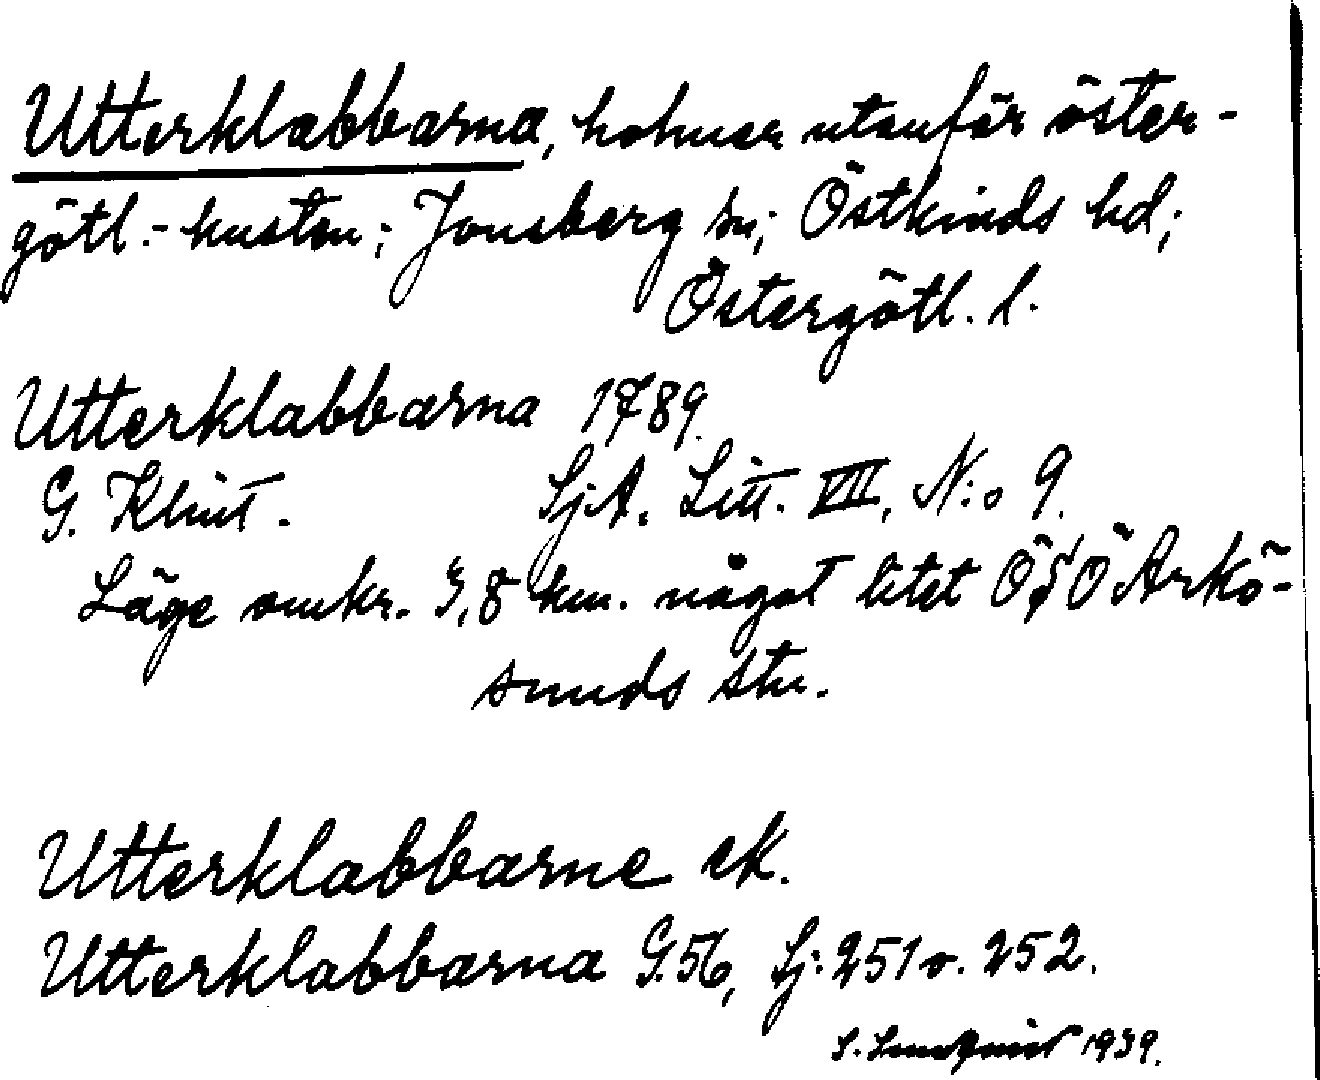 Utterklabbarna, holmar utanför öster-
götl.-kusten; Jonsberg sn; Östkinds hd;
Östergötl. l.
Utterklabbarna 1789.
G. Klint. SjA. Litt. VII, N:o 9.
Läge omkr. 3,8 km. något litet ÖSÖ Arkö-
sunds stn.
Utterklabbarne ek.
Utterklabbarna G.56, Sj. 251 o. 252.
S. Lundqvist 1939.